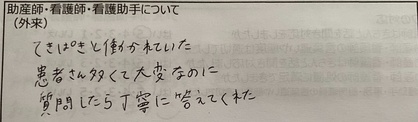 助産師・看護師・看護助手について
（外来）
てきぱきと働かれていた
患者さん多くて大変なのに
質問したら丁寧に答えてくれた